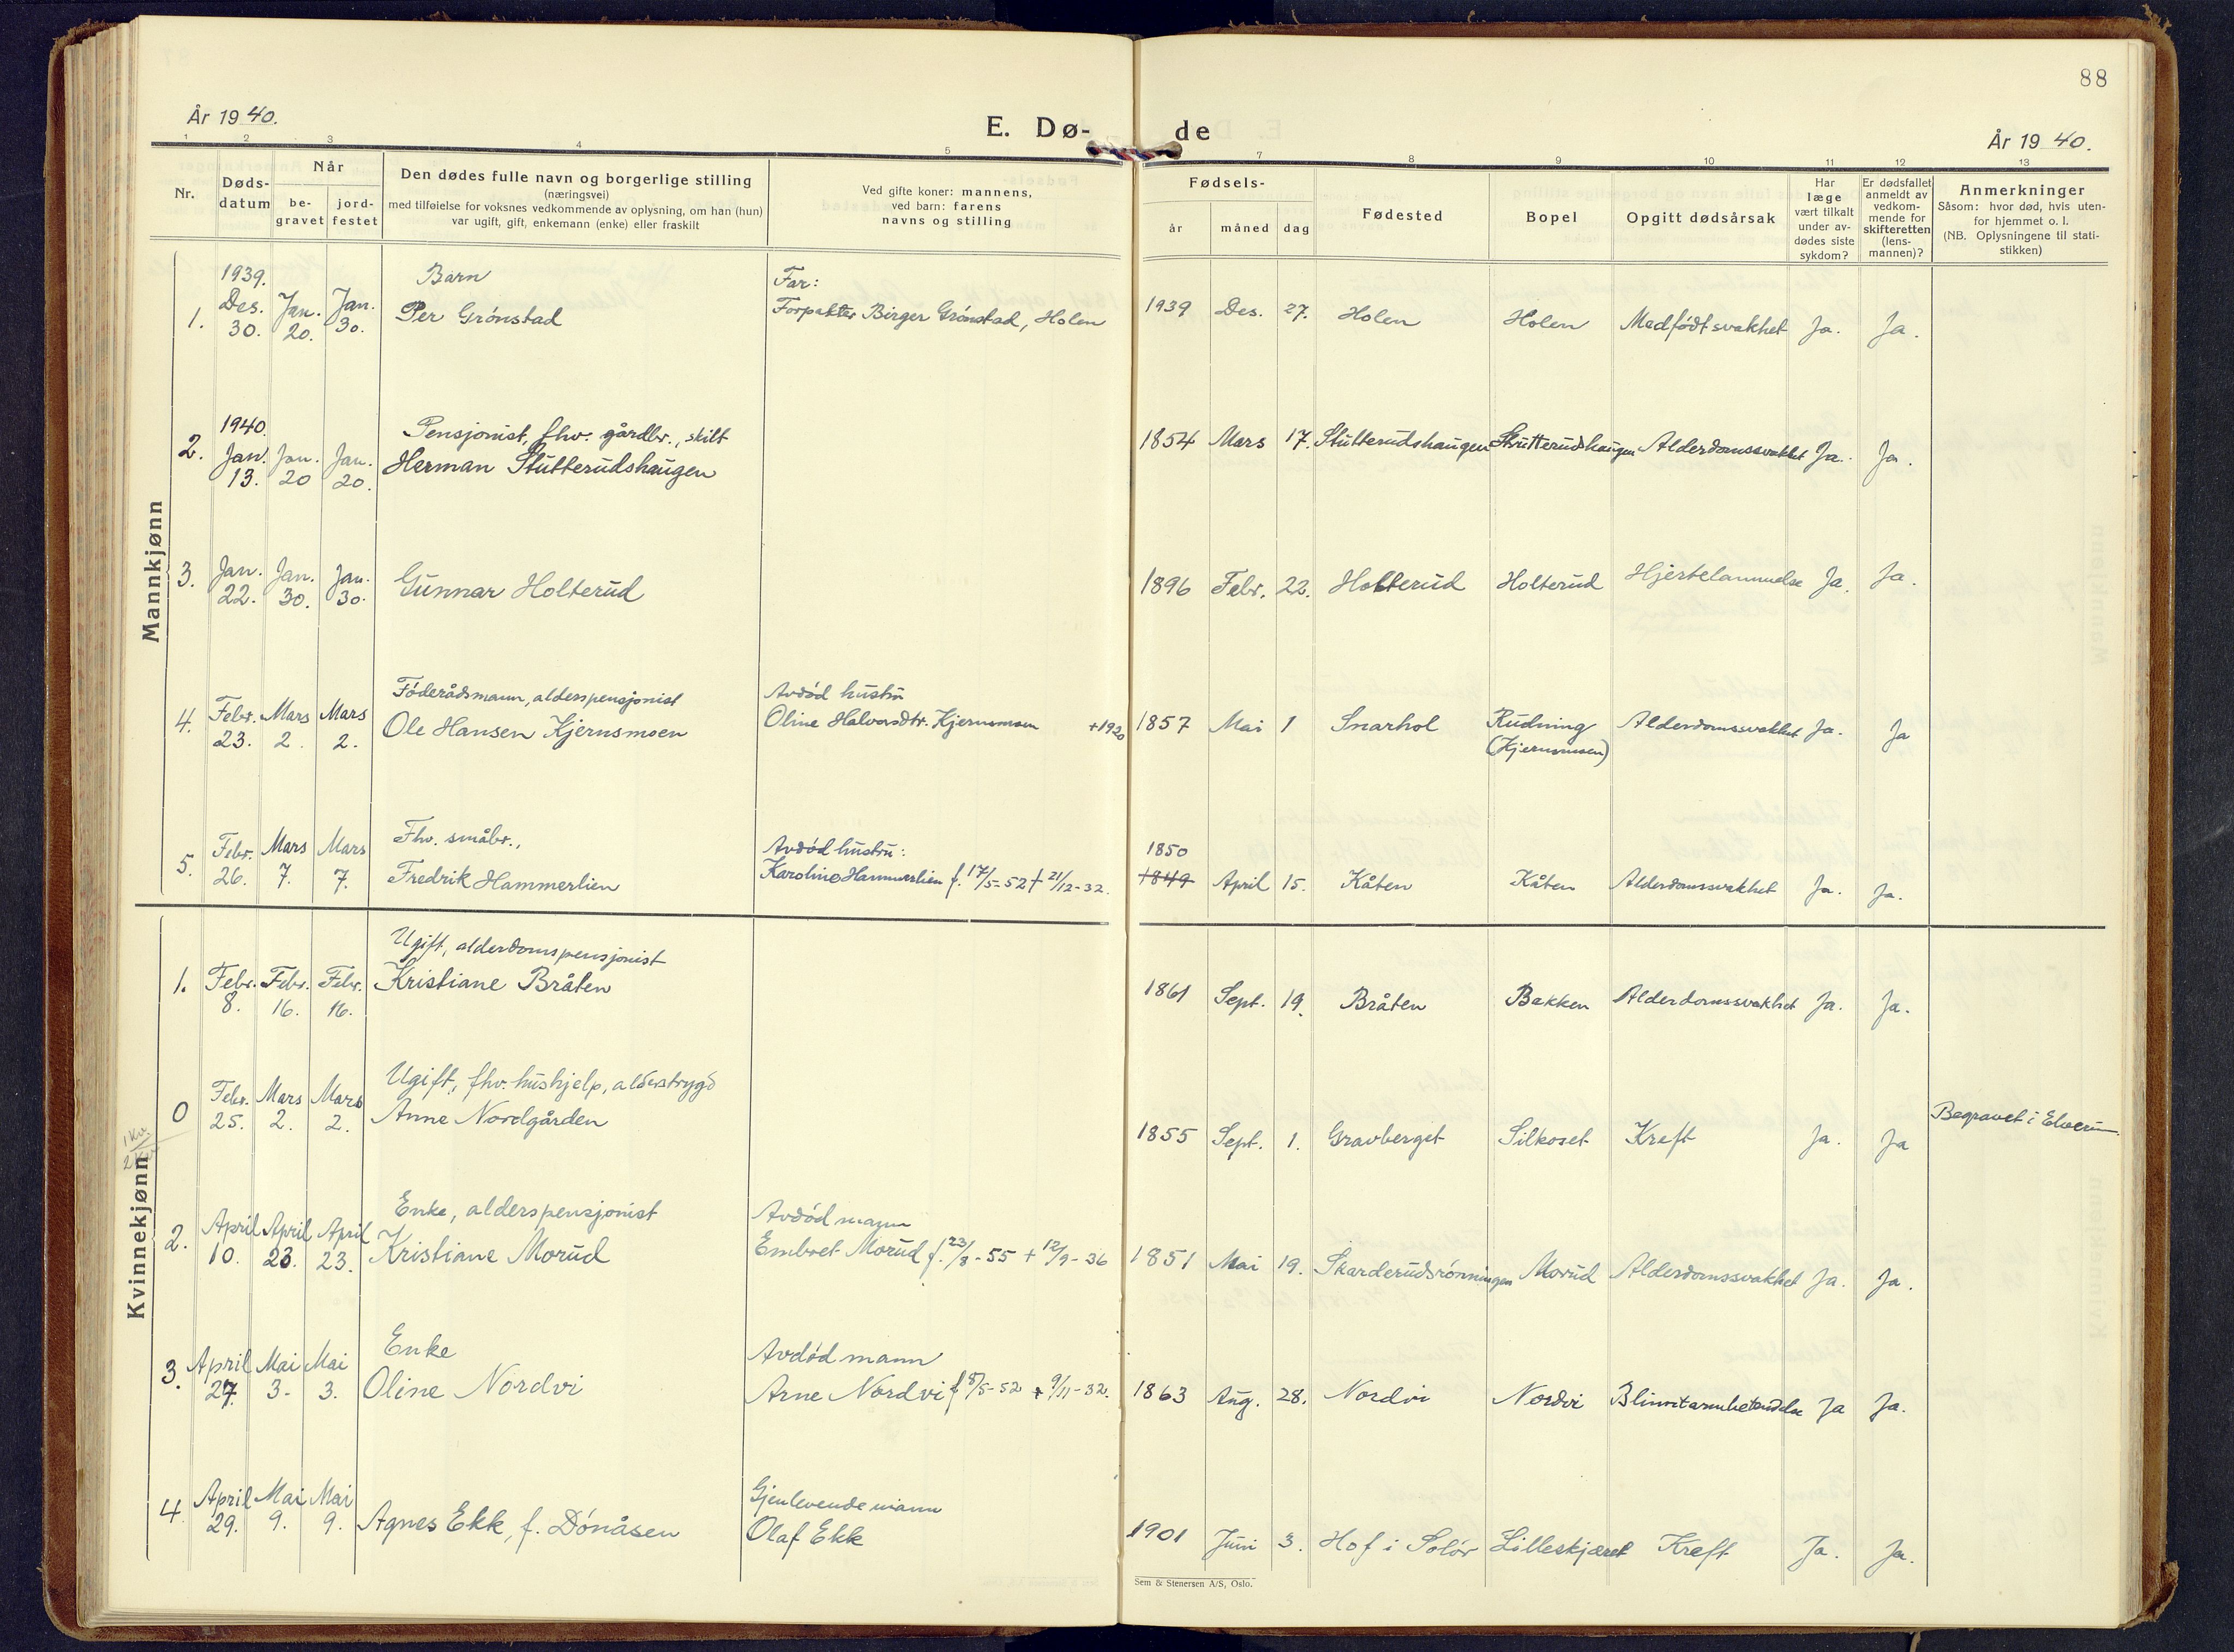 88
År 1940.
E. Dø- de
År 1940.
1 2 3 4 5 7 8 9 10 11 12 13
Nr.
Døds-
datum
Når
be-
gravet
jord-
festet
Den dødes fulle navn og borgerlige stilling
(næringsvei)
med tilføielse for voksnes vedkommende av oplysning, om han (hun)
var ugift, gift, enkemann (enke) eller fraskilt
Ved gifte koner: mannens,
ved barn: farens
navns og stilling
Fødsels-
år måned dag
Fødested
Bopel
Opgitt dødsårsak
Har
læge
vært tilkalt
under av-
dødes siste
sykdom?
Er dødsfallet
anmeldt av
vedkom-
mende for
skifteretten
(lens-
mannen)?
Anmerkninger
Såsom: hvor død, hvis uten-
for hjemmet o. l.
(NB. Oplysningene til stati-
stikken)
Mannkjønn
1939. Barn Far:
1. Des. 30. Jan. 20. Jan. 30. Per Grönstad Forpakter Birger Grönstad, Holen 1939 Des. 27. Holen Holen Medfödt svakhet Ja. Ja.
1940. Pensjonist, fhv. gårdbr., skilt
2. Jan. 13. Jan. 20 Jan. 20. Herman Stutterudshaugen 1854 Mars 17. Stutterudshaugen Strutterudshaugen Alderdomssvakhet Ja. Ja.
3. Jan. 22. Jan. 30. Jan. 30. Gunnar Holterud 1896 Febr. 22. Holterud Holterud Hjertelammelse Ja. Ja.
Föderådsmann, alderspensjonist Avdöd hustru
4. Febr. 23. Mars 2. Mars 2. Ole Hansen Kjernsmoen Oline Halvorsdtr. Kjernsmoen +1920 1857 Mai 1 Snarhol Rudning (Kjernsmoen) Alderdomssvakhet Ja. Ja
Fhv. småbr., Avdöd hustru: 1850
5. Febr. 26. Mars 7. Mars 7. Fredrik Hammerlien Karoline Hammerlien f. 17/5-52 + 21/12-32. 1849 April 15. Kåten Kåten Alderdomssvakhet Ja. Ja.
Kvinnekjønn
Ugift, alderdomspensjonist
1. Febr. 8. Febr. 16. Febr. 16. Kristiane Bråten 1861 Sept. 19. Bråten Bakken Alderdomssvakhet Ja. Ja.
Ugift, fhv. hushjelp, alderstrygd
0 Febr. 25. Mars 2. Mars 2. Anne Nordgården 1855 Sept. 1. Gravberget Silkoset Kreft Ja. Ja Begravet i Elverum.
1 Kv.
Enke, alderspensjonist Avdöd mann
2. April 10. April 23. April 23. Kristiane Morud Embret Morud f. 23/8-55 + 12/9-36 1851 Mai 19. Skarderudsrönningen Morud Alderdomssvakhet Ja. Ja.
Enke Avdöd mann
3. April 27. Mai 3. Mai 3. Oline Nordvi Arne Nordvi f 5/5-52 + 9/11-32. 1863 Aug. 28. Nordvi Nordvi Ja Ja.
Gjenlevende mann
4. April 29. Mai 9. Mai 9. Agnes Ekk, f. Dönåsen Olaf Ekk 1901 Juni 3. Hof i Solör Lilleskjæret Kreft Ja. Ja.
Sem & Stenersen A/S, Oslo.